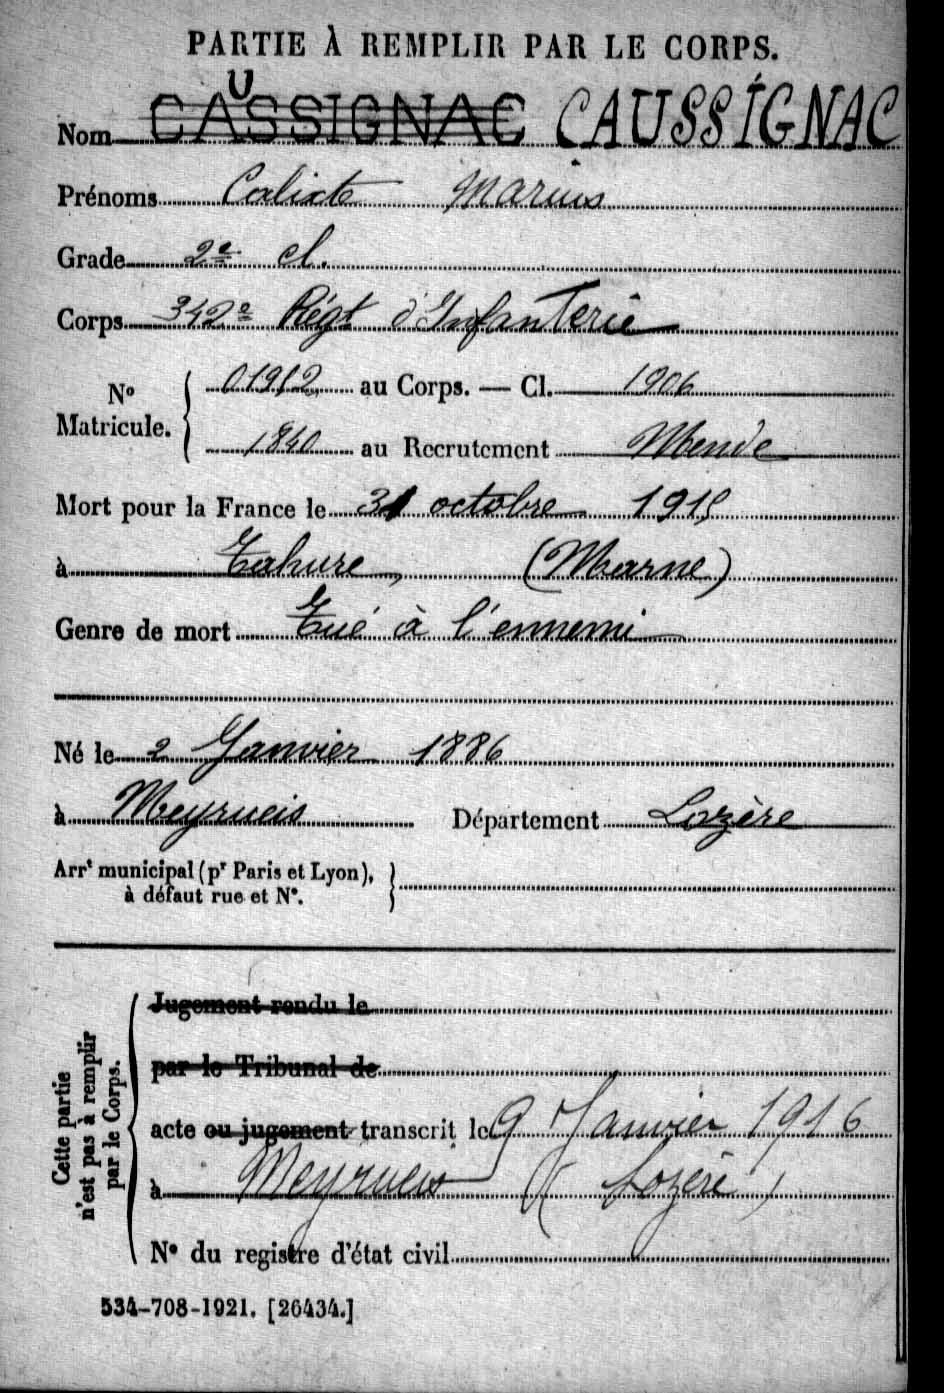 PARTIE À REMPLIR PAR LE CORPS.
Nom CAUSSIGNAC CAUSSIGNAC
Prénoms Calixte Marius
Grade 2e cl.
Corps 342e Régt d'Infanterie
No Matricule. { 01912 au Corps. — Cl. 1906
1840 au Recrutement Mende
Mort pour la France le 31 octobre 1915
à Tahure, (Marne)
Genre de mort Tué à l'ennemi
Né le 2 Janvier 1886
à Meyrueis Département Lozère
Arrt municipal (pr Paris et Lyon),
à défaut rue et No.
Cette partie n'est pas à remplir par le Corps.
Jugement rendu le
par le Tribunal de
acte ou jugement transcrit le 9 Janvier 1916
à Meyrueis (Lozère)
No du registre d'état civil
534-708-1921. [26434.]